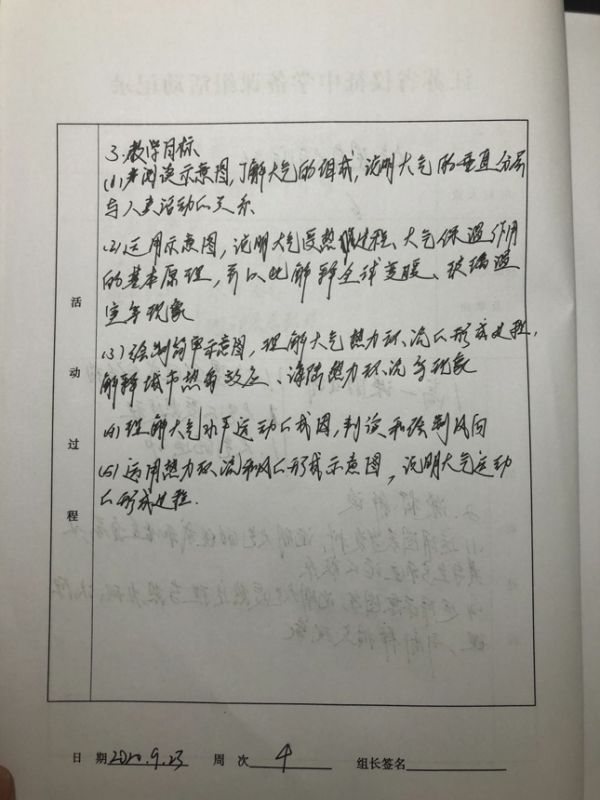 3.教学目标
(1)判读示意图,了解大气的组成,说明大气的垂直分层
与人类活动的关系
(2)运用示意图,说明大气受热过程、大气保温作用
的基本原理,并以此解释全球变暖、玻璃温
室等现象
(3)绘制简单示意图,理解大气热力环流的形成过程,
解释城市热岛效应、海陆热力环流等现象
(4)理解大气水平运动的成因,判读和绘制风向
(5)运用热力环流和风的形成示意图,说明大气运动
的形成过程.
活动过程
日期 2020.9.23 周次 4 组长签名